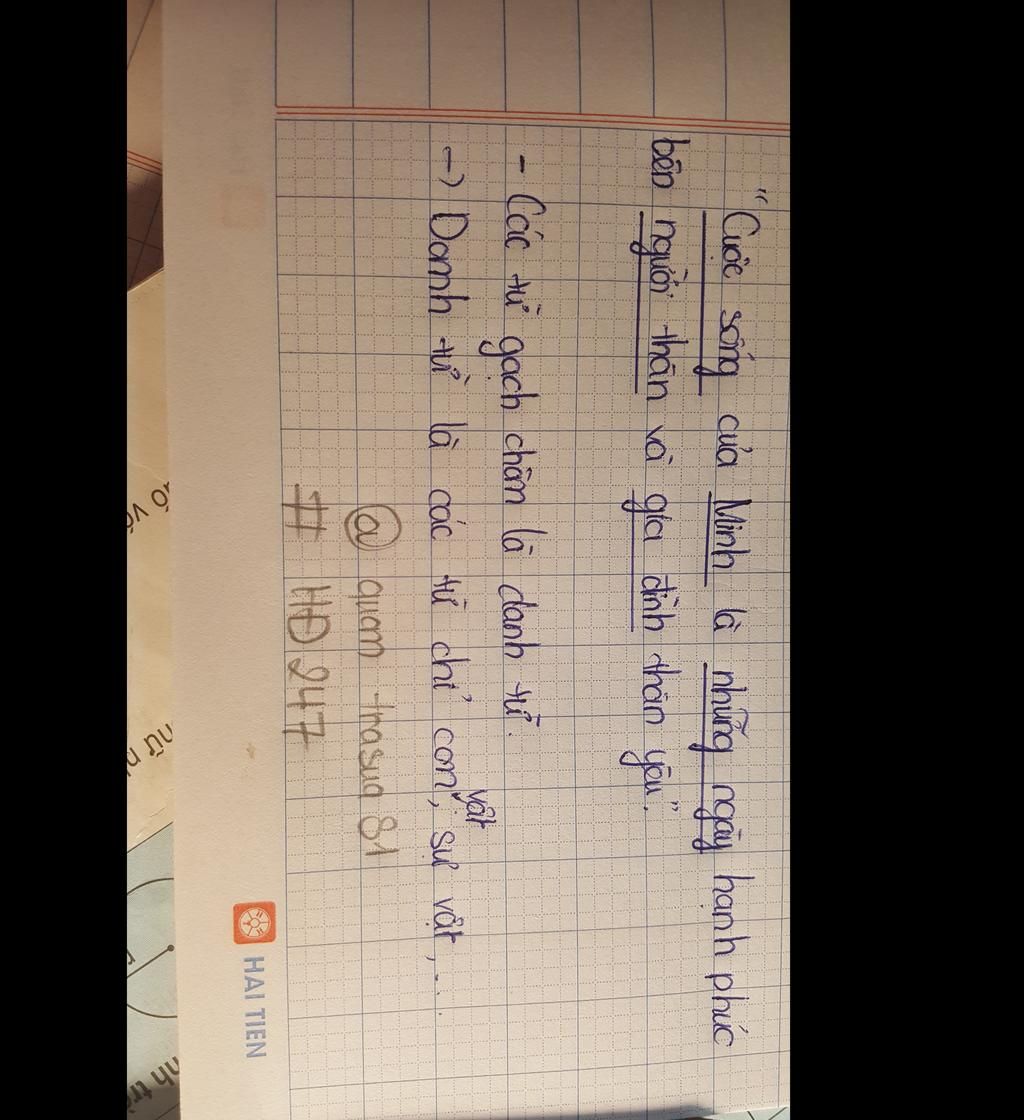 "Cuộc sống của Minh là những ngày hạnh phúc
bên người thân và gia đình thân yêu."
- Các từ gạch chân là danh từ.
→ Danh từ là các từ chỉ con vật, sự vật,...
@ quam trasua 81
# HĐ247
HAI TIEN